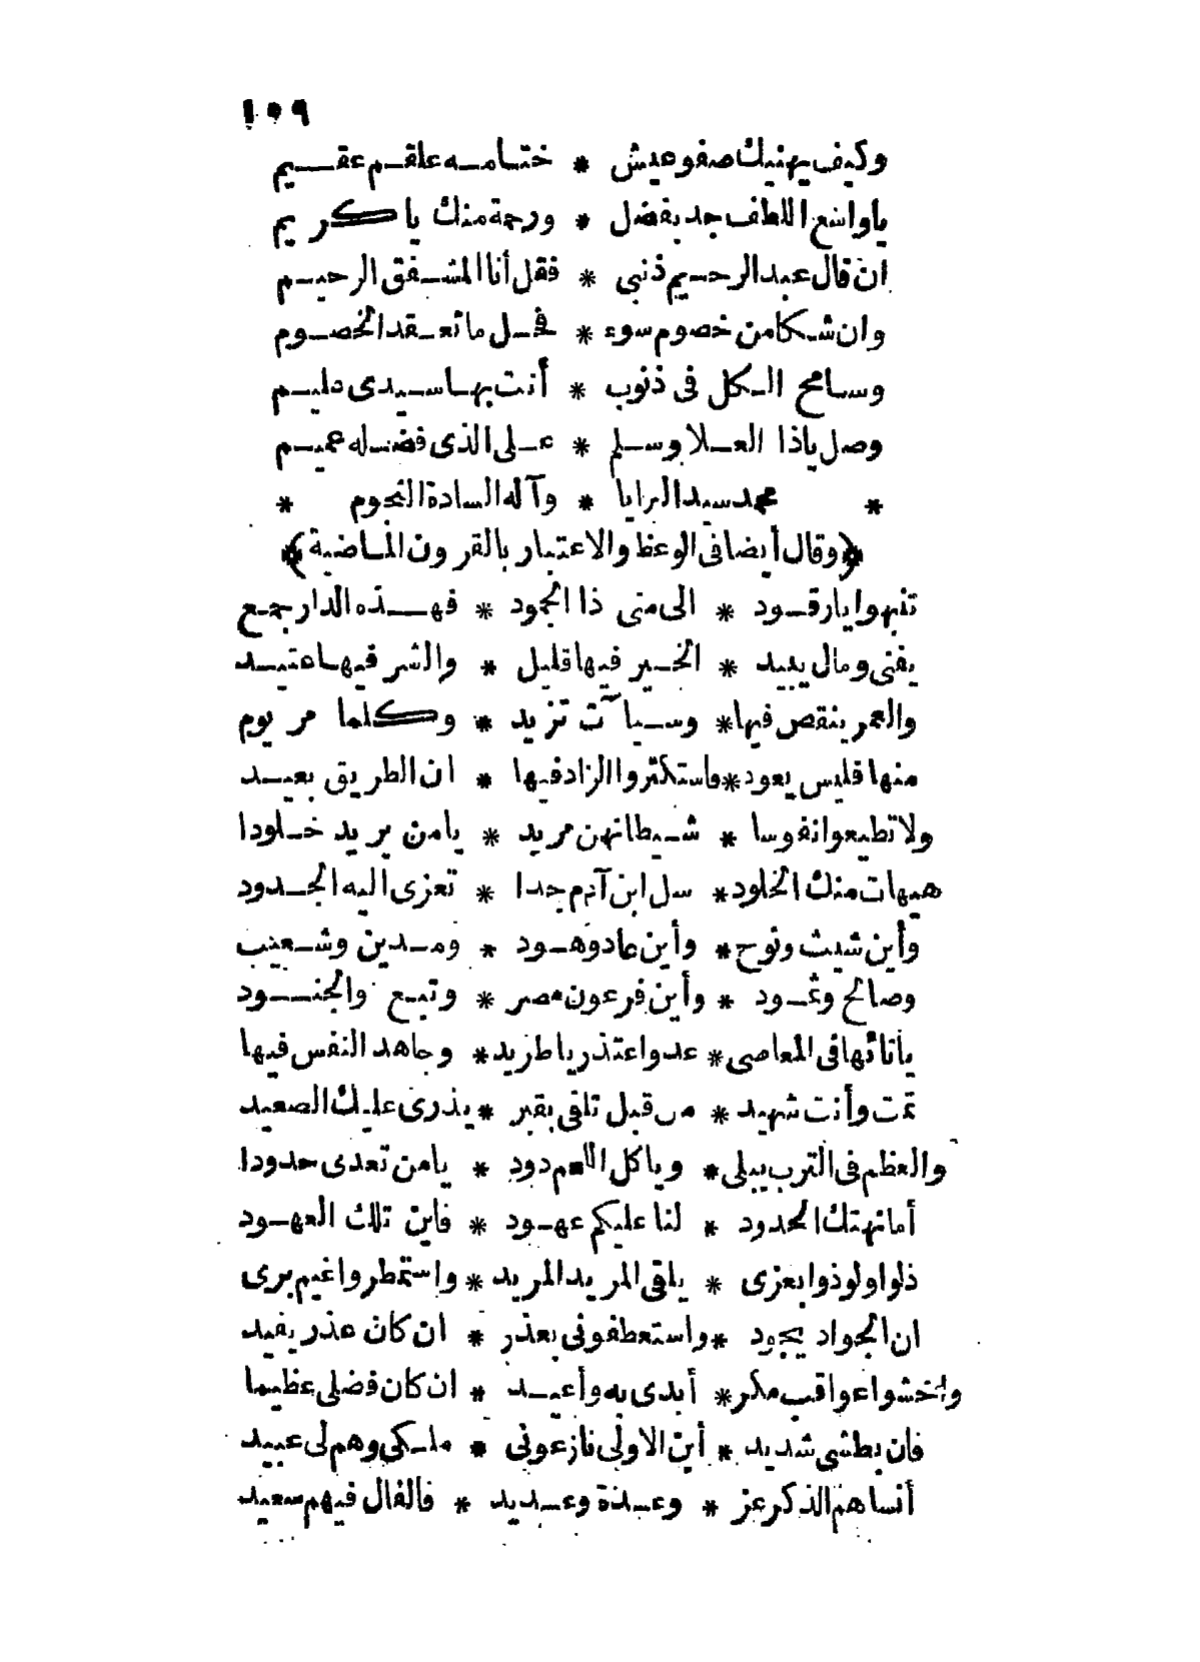 ١٥٩
وكيف يهنيك صفو عيش * ختامه علقم عقيم
ياواسع اللطف جد بفضل * ورحمة منك يا كريم
ان قال عبد الرحيم ذنبي * فقل أنا المشفق الرحيم
وان شكا من خصوم سوء * فحل ما تعقد الخصوم
وسامح الكل في ذنوب * أنت بها سيدى عليم
وصل ياذا العلا وسلم * على الذى فضله عميم
* محمد سيد البرايا * وآله السادة النجوم *
﴿وقال أيضا فى الوعظ والاعتبار بالقرون الماضية﴾
تنبهوا يارقود * الى متى ذا الجمود * فهذه الدار جمع
يفنى ومال يبيد * الخير فيها قليل * والشر فيها عتيد
والعمر ينقص فيها * وسيآت تزيد * وكلما مر يوم
منها فليس يعود * فاستكثروا الزاد فيها * ان الطريق بعيد
ولا تطيعوا نفوسا * شيطانهن مريد * يامن يريد خلودا
هيهات منك الخلود * سل ابن آدم جدا * تعزى اليه الجدود
وأين شيث ونوح * وأين عاد وهود * ومدين وشعيب
وصالح وثمود * وأين فرعون مصر * وتبع والجنود
ياتائها فى المعاصى * عد واعتذر ياطريد * وجاهد النفس فيها
تمت وأنت شهيد * من قبل تلقى بقبر * يذرى عليك الصعيد
والعظم فى الترب يبلى * وياكل اللحم دود * يامن تعدى حدودا
أما نهتك الحدود * لنا عليكم عهود * فاين تلك العهود
ذلوا ولوذوا بعزى * يلقى المريد المريد * واستمطروا غيم برى
ان الجواد يجود * واستعطفونى بعذر * ان كان عذر يفيد
واخشوا عواقب مكر * أبدى به وأعيد * ان كان فضلى عظيما
فان بطشى شديد * أين الاولى نازعونى * ملكى وهم لى عبيد
أنساهم الذكر عز * وعدة وعديد * فالفال فيهم سعيد